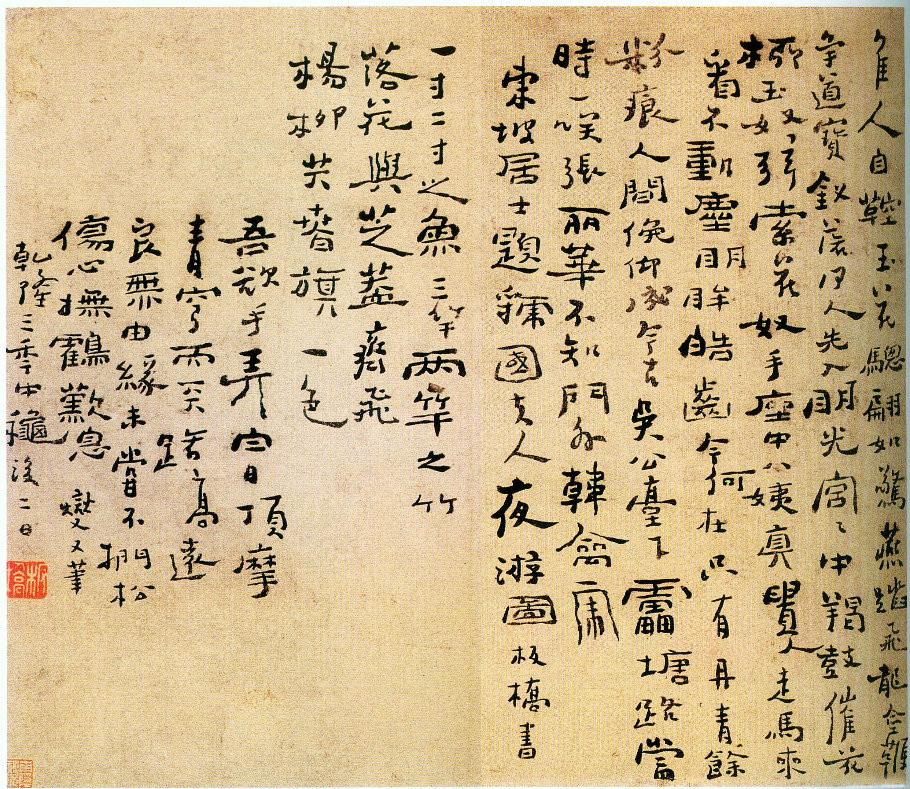 佳人自鞚玉花驄翩如驚燕踏飛龍金鞭
爭道寶釵落何人先入明光宮々中羯鼓催花
柳玉奴弦索花奴手座中八姨真貴人走馬來
看不動塵明眸皓齒今何在只有丹青餘
粉痕人間俛仰成今古吳公臺下雷塘路當
時一咲張丽華不知門外韓禽虎
東坡居士題虢國夫人夜游圖 板橋書
一寸二寸之魚三竿兩竿之竹
落花與芝蓋齊飛
楊柳共春旗一色
吾欲手弄白日頂摩
青穹而天路高遠
良無由緣未嘗不捫松
傷心撫鶴歎息 燮又筆
乾隆三年中龝後二日